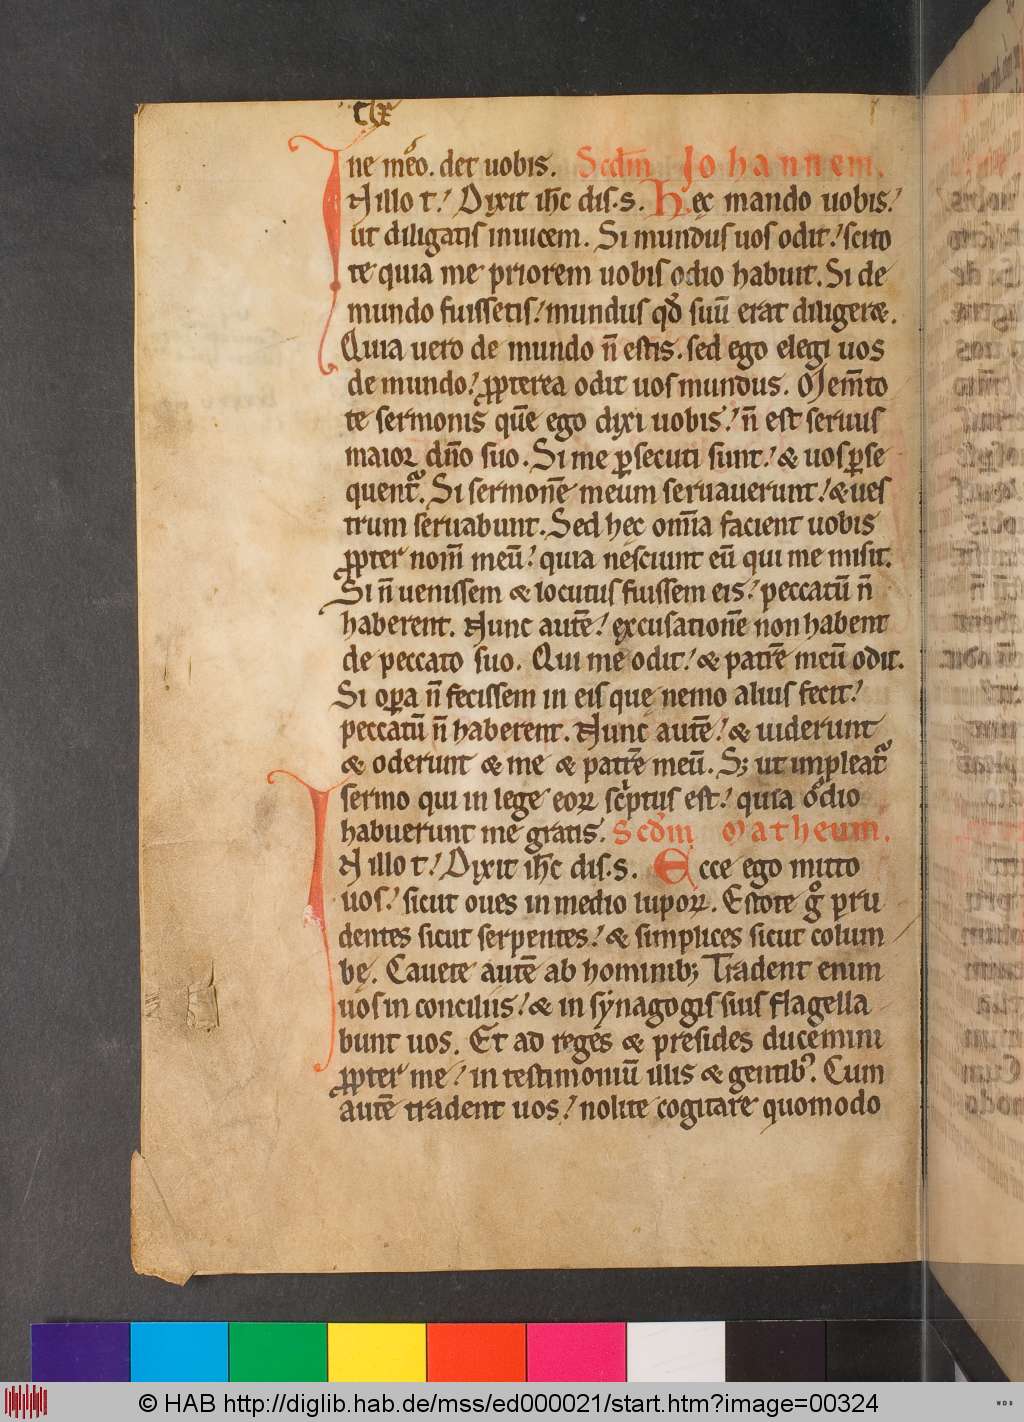 clx
ne meo. det uobis. Scdm Iohannem.
IN illo t. Dixit ihc dis. s. Hęc mando uobis.
ut diligatis inuicem. Si mundus uos odit. scito
te quia me priorem uobis odio habuit. Si de
mundo fuissetis. mundus qđ suū erat diligeret.
Quia uero de mundo n̄ estis. sed ego elegi uos
de mundo. ꝓpterea odit uos mundus. Mem̄to
te sermonis quē ego dixi uobis. n̄ est seruus
maior dn̄o suo. Si me ꝑsecuti sunt. & uos ꝑse
quent᷑. Si sermonē meum seruauerunt. & ues
trum seruabunt. Sed hęc om̄ia facient uobis
ꝓpter nom̄ meū. quia nesciunt eū qui me misit.
Si n̄ uenissem & locutus fuissem eis. peccatū n̄
haberent. Nunc autē. excusationē non habent
de peccato suo. Qui me odit. & patrē meū odit.
Si oꝑa n̄ fecissem in eis quę nemo alius fecit.
peccatū n̄ haberent. Nunc autē. & uiderunt
& oderunt & me & patrē meū. S; ut impleat᷑
sermo qui in lege eoꝝ scͥptus est. quia odio
habuerunt me gratis. Scdm Matheum.
N illo t. Dixit ihc dis. s. Ecce ego mitto
uos. sicut oues in medio lupoꝝ. Estote gͦ pru
dentes sicut serpentes. & simplices sicut colum
bę. Cauete autē ab hominib; Tradent enim
uos in conciliis. & in synagogis suis flagella
bunt uos. Et ad reges & presides ducemini
ꝓpter me. in testimoniū illis & gentibꝰ. Cum
autē tradent uos. nolite cogitare quomodo
© HAB http://diglib.hab.de/mss/ed000021/start.htm?image=00324